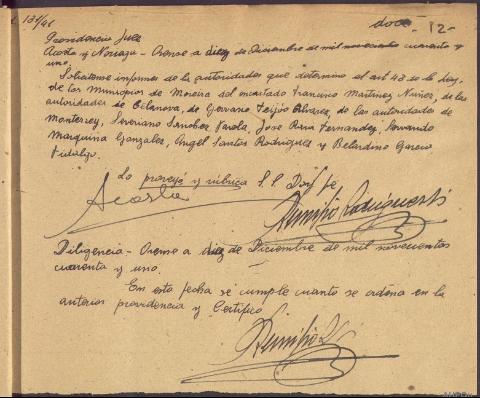 131/41
doce - 12 -
Providencia Juez
Acosta y Noriega - Orense a diez de Diciembre de mil novecientos cuarenta y
uno.
Solicitense informes de la autoridades que determina el art 48 de la Ley,
de los Municipios de Moreira del encartado Francisco Martinez Nuñez, de las
autoridades de Celanova, de Gervasio Feijóo Alvarez, de las autoridades de
Monterrey, Severiano Sanchez Varela, Jose Rua Fernandez, Servando
Marquina Gonzalez, Angel Santos Rodriguez y Belardino Garcia
Vidalgo.
Lo proveyó y rúbrica S.S. Doy fe
Acosta
Remigio Rodriguez
Diligencia - Orense a diez de Diciembre de mil novecientos
cuarenta y uno.
En esta fecha se cumple cuanto se ordena en la
anterior providencia y Certifico
Remigio